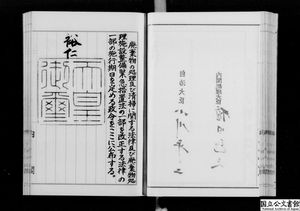 廃棄物の処理及び清掃に関する法律及び廃棄物処
理施設整備緊急措置法の一部を改正する法律の
一部の施行期日を定める政令をここに公布する。
裕仁
天皇
御璽
内閣総理大臣
自治大臣
国立公文書館
National Archives of Japan